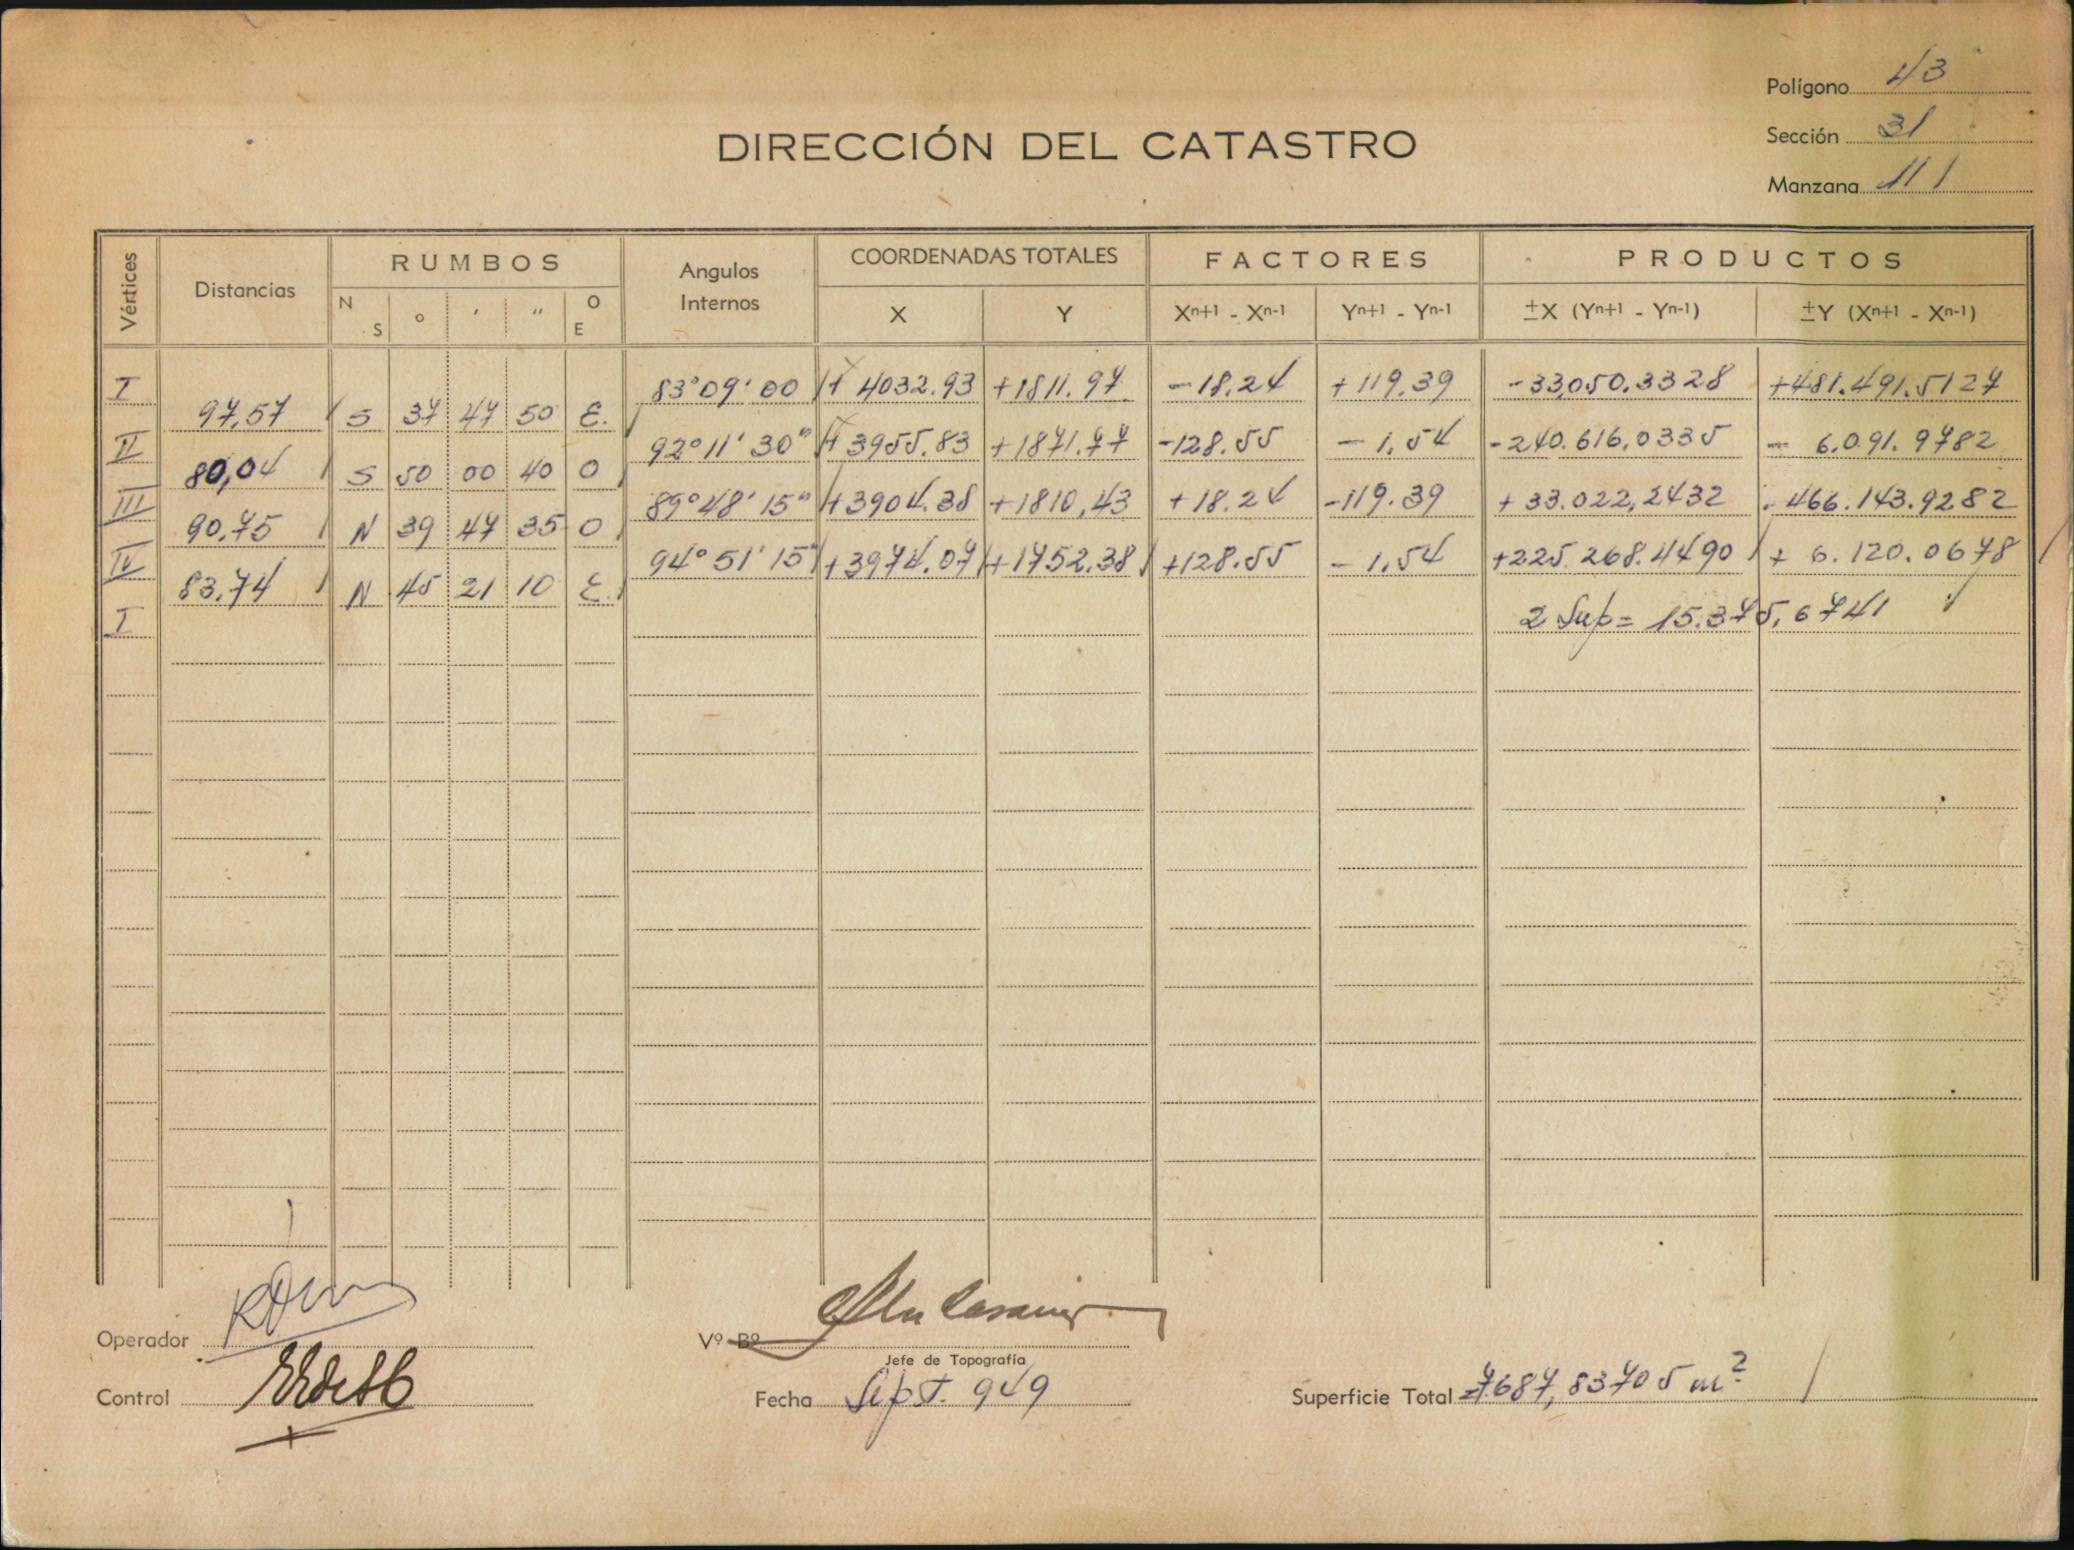 Polígono 43
Sección 31
Manzana 111
DIRECCIÓN DEL CATASTRO
Vértices Distancias RUMBOS Angulos Internos COORDENADAS TOTALES FACTORES PRODUCTOS
N S o ' " O E X Y Xn+1 - Xn-1 Yn+1 - Yn-1 ±X (Yn+1 - Yn-1) ±Y (Xn+1 - Xn-1)
I 83°09'00 + 4032.93 +1811.97 -18.24 +119.39 -33,050.3328 +481.491.5127
97,57 S 37 47 50 E.
II 92°11'30" + 3955.83 +1871.77 -128.55 - 1.54 -240.616,0335 - 6.091.9782
80,04 S 50 00 40 O
III 89°48'15" +3904.38 +1810,43 +18.24 -119.39 + 33.022,2432 - 466.143.9282
90.75 N 39 47 35 O
IV 94°51'15" +3974.07 +1752.38 +128.55 - 1.54 +225.268.4490 + 6.120.0678
83.74 N 45 21 10 E.
I 2 Sup = 15.375,6741
Operador
Vº Bº
Jefe de Topografía
Control
Fecha Sept. 949
Superficie Total = 7.687,83705 m²